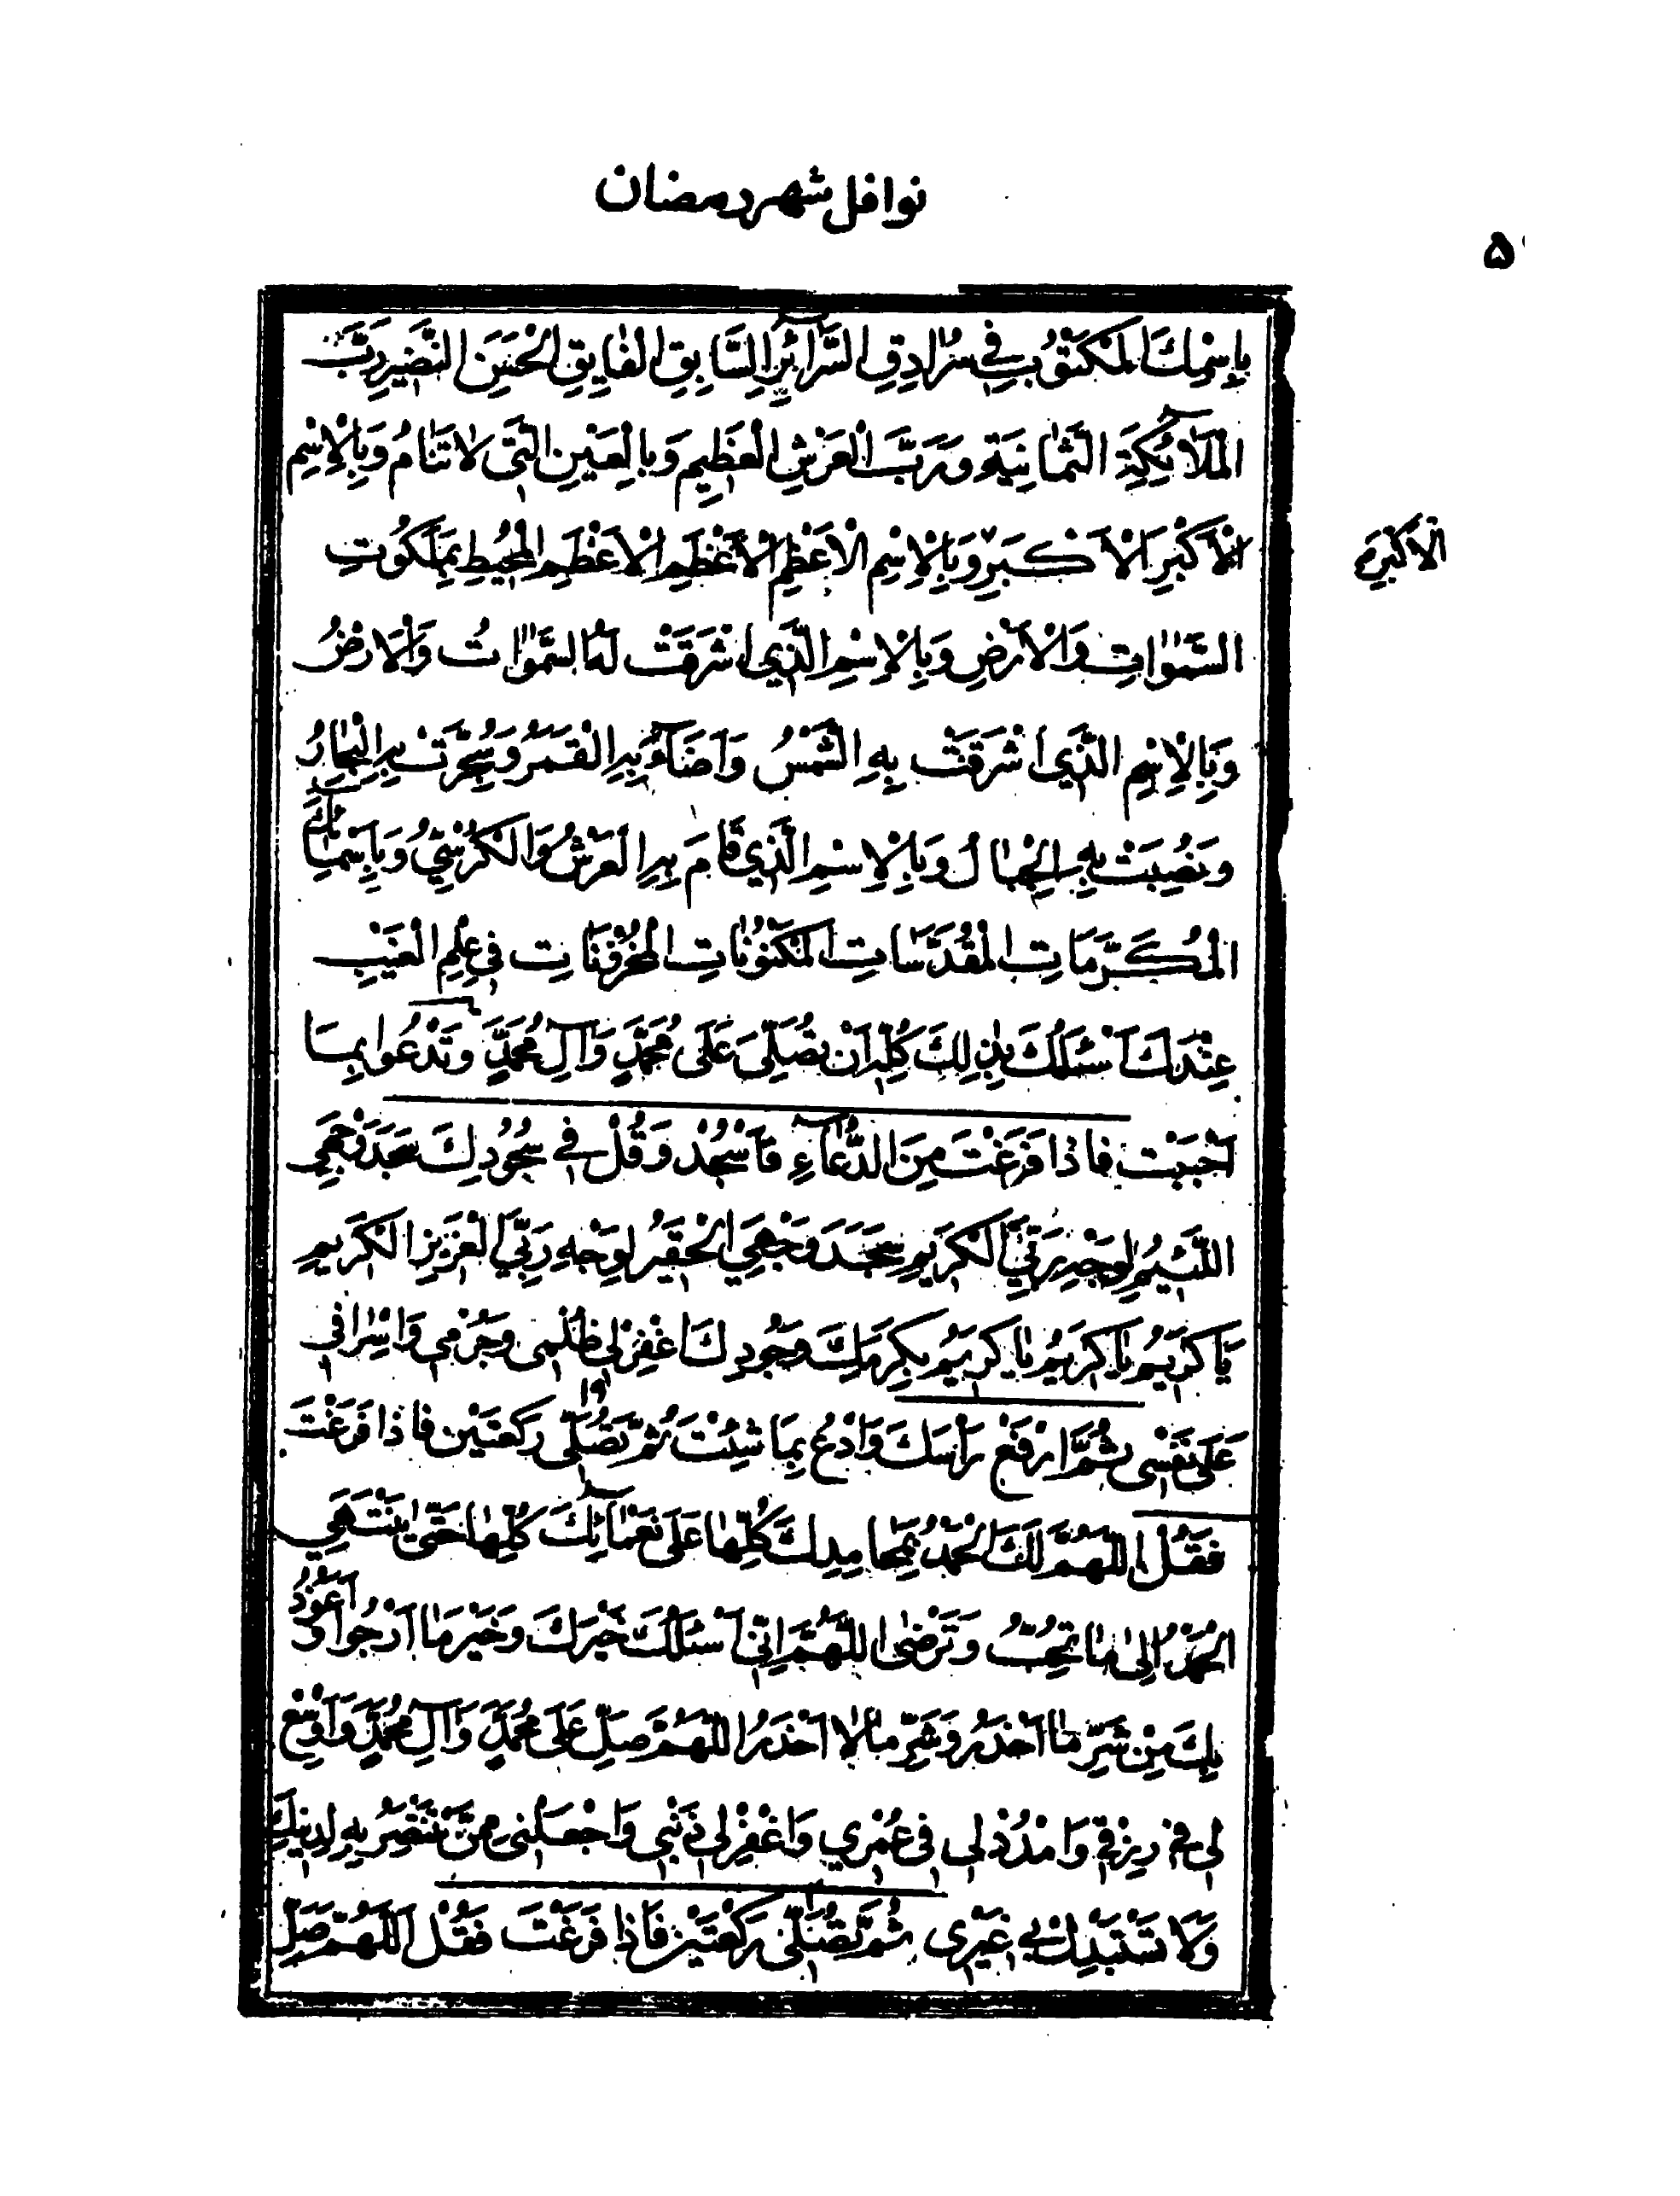 نوافل شهر رمضان
۵
بِاسْمِكَ الْمَكْتُوبِ فِي سُرَادِقِ السَّرَائِرِ السَّابِقِ الْفَايِقِ الْحَسَنِ النَّضِيرِ رَبِّ
الْمَلَائِكَةِ الثَّمَانِيَةِ وَرَبِّ الْعَرْشِ الْعَظِيمِ وَبِالْعَيْنِ الَّتِي لَا تَنَامُ وَبِالْاِسْمِ
الْاَكْبَرِ الْاَكْبَرِ وَبِالْاِسْمِ الْاَعْظَمِ الْاَعْظَمِ الْاَعْظَمِ الْمُحِيطِ بِمَلَكُوتِ
الْاَكْبَرِ
السَّمٰوَاتِ وَالْاَرْضِ وَبِالْاِسْمِ الَّذِي اَشْرَقَتْ لَهُ السَّمٰوَاتُ وَالْاَرْضُ
وَبِالْاِسْمِ الَّذِي اَشْرَقَتْ بِهِ الشَّمْسُ وَاَضَاءَ بِهِ الْقَمَرُ وَسُجِّرَتْ بِهِ الْبِحَارُ
وَنُصِبَتْ بِهِ الْجِبَالُ وَبِالْاِسْمِ الَّذِي قَامَ بِهِ الْعَرْشُ وَالْكُرْسِيُّ وَبِاَسْمَائِكَ
الْمُكَرَّمَاتِ الْمُقَدَّسَاتِ الْمَكْنُونَاتِ الْمَخْزُونَاتِ فِي عِلْمِ الْغَيْبِ
عِنْدَكَ اَسْئَلُكَ بِذٰلِكَ كُلِّهِ اَنْ تُصَلِّيَ عَلَى مُحَمَّدٍ وَآلِ مُحَمَّدٍ وَتَدْعُوا بِمَا
اَحْبَبْتَ فَاِذَا فَرَغْتَ مِنَ الدُّعَاءِ فَاسْجُدْ وَقُلْ فِي سُجُودِكَ سَجَدَ وَجْهِيَ
اللَّئِيمُ لِوَجْهِ رَبِّيَ الْكَرِيمِ سَجَدَ وَجْهِيَ الْحَقِيرُ لِوَجْهِ رَبِّيَ الْعَزِيزِ الْكَرِيمِ
يَا كَرِيمُ يَا كَرِيمُ يَا كَرِيمُ بِكَرَمِكَ وَجُودِكَ اغْفِرْ لِي ظُلْمِي وَجُرْمِي وَاِسْرَافِي
عَلَى نَفْسِي ثُمَّ ارْفَعْ رَأْسَكَ وَادْعُ بِمَا شِئْتَ ثُمَّ تُصَلِّي رَكْعَتَيْنِ فَاِذَا فَرَغْتَ
فَقُلْ اللّٰهُمَّ لَكَ الْحَمْدُ بِمَحَامِدِكَ كُلِّهَا عَلَى نَعْمَائِكَ كُلِّهَا حَتَّى يَنْتَهِيَ
الْحَمْدُ اِلَى مَا تُحِبُّ وَتَرْضَى اللّٰهُمَّ اِنِّي اَسْئَلُكَ خَيْرَكَ وَخَيْرَ مَا اَرْجُوا وَاَعُوذُ
بِكَ مِنْ شَرِّ مَا اَحْذَرُ وَشَرِّ مَا لَا اَحْذَرُ اللّٰهُمَّ صَلِّ عَلَى مُحَمَّدٍ وَآلِ مُحَمَّدٍ وَاَوْسِعْ
لِي فِي رِزْقِي وَامْدُدْ لِي فِي عُمْرِي وَاغْفِرْ لِي ذَنْبِي وَاجْعَلْنِي مِمَّنْ تَنْتَصِرُ بِهِ لِدِينِكَ
وَلَا تَسْتَبْدِلْ بِي غَيْرِي ثُمَّ تُصَلِّي رَكْعَتَيْنِ فَاِذَا فَرَغْتَ فَقُلْ اللّٰهُمَّ صَلِّ